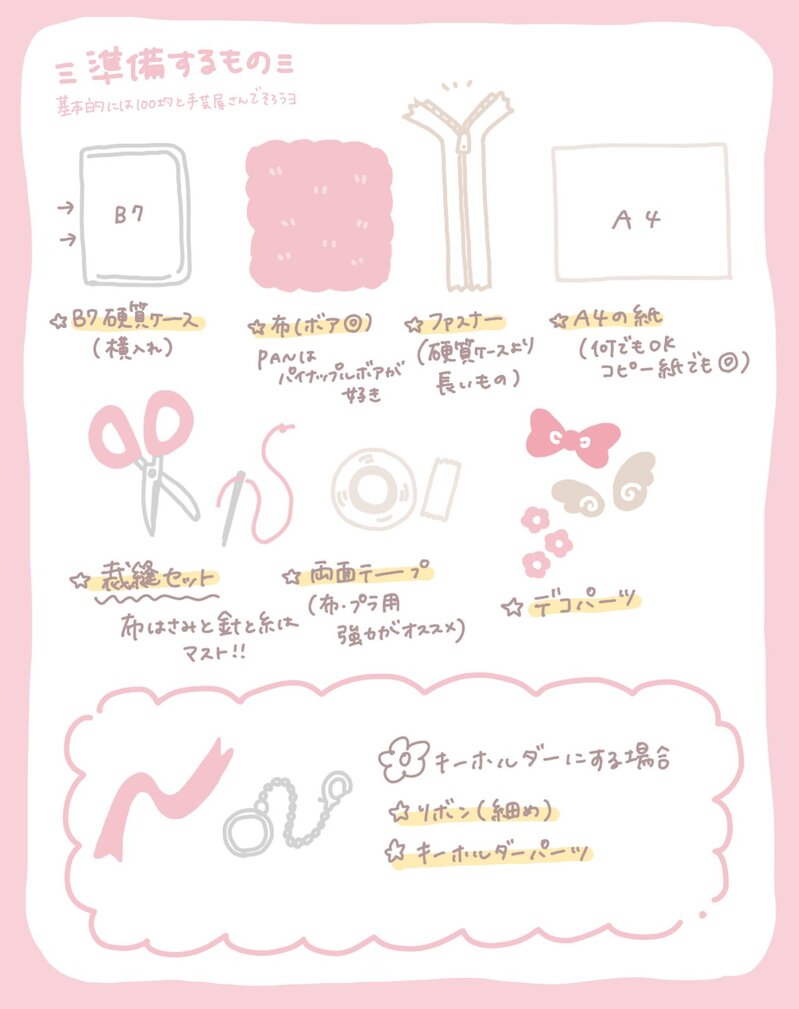 準備するもの
基本的には100均と手芸屋さんでそろうヨ
B7
A4
☆B7硬質ケース
(横入れ)
☆布(ボア◎)
PANは
パイナップルボアが
好き
☆ファスナー
(硬質ケースより
長いもの)
☆A4の紙
(何でもOK
コピー紙でも◎)
☆裁縫セット
布はさみと針と糸は
マスト!!
☆両面テープ
(布・プラ用
強力がオススメ)
☆デコパーツ
キーホルダーにする場合
☆リボン(細め)
☆キーホルダーパーツ